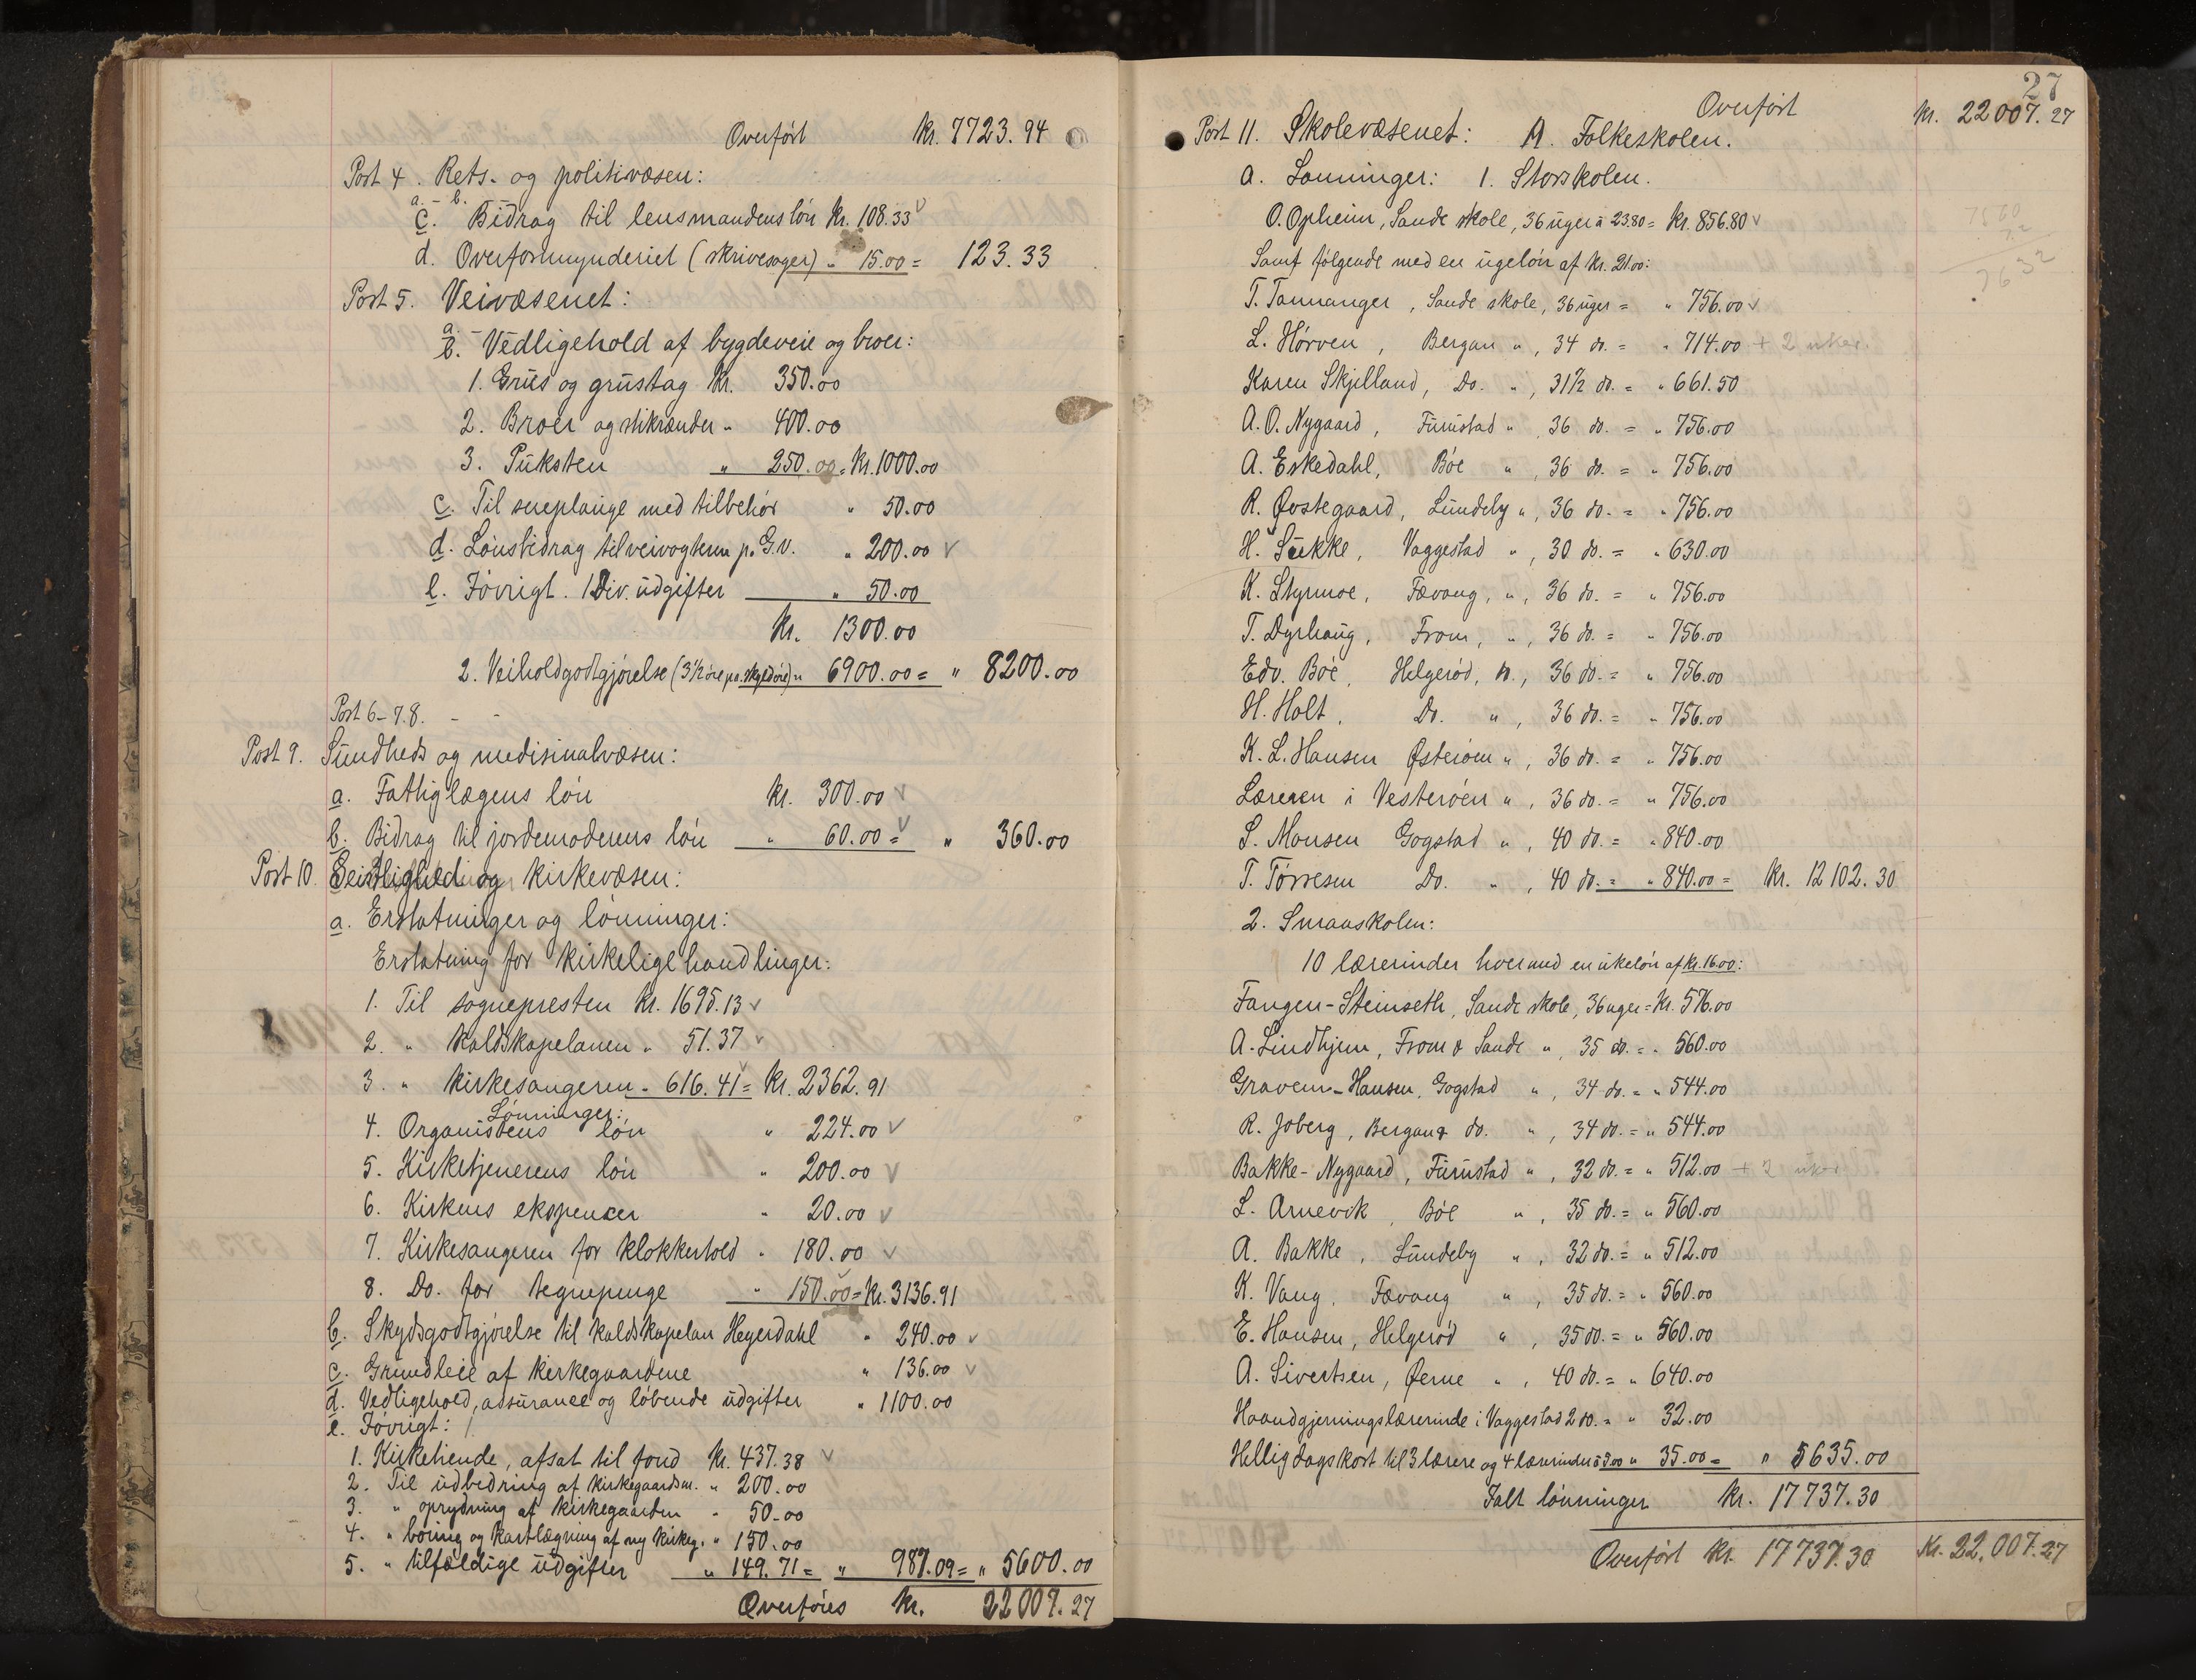 Overført Kr. 7723.94
Post 4. Rets- og politivæsen:
a. - b.
c. Bidrag til lensmandens løn Kr. 108.33
d. Overformynderiet (skrivesager) " 15.00 = 123.33
Post 5. Veivæsenet:
a. -
b. Vedligehold af bygdeveie og broer:
1. Grus og grustag Kr. 350.00
2. Broer og stikrender " 400.00
3. Puksten " 250.00 = Kr. 1000.00
c. Til sneplauge med tilbehør " 50.00
d. Lønsbidrag til veivogteren p. G.v. " 200.00
e. Iøvrigt. 1 Div. udgifter " 50.00
Kr. 1300.00
2. Veiholdgodtgjørelse (3 1/2 øre pr. skyldøre) " 6900.00 = " 8200.00
Post 6-7.8. - -
Post 9. Sundheds og medisinalvæsen:
a. Fattiglægens løn Kr. 300.00
b. Bidrag til jordemoderens løn " 60.00 = " 360.00
Post 10. Geistlighed og kirkevæsen:
a. Erstatninger og lønninger:
Erstatning for kirkelige handlinger:
1. Til sognepresten Kr. 1695.13
2. " kaldskapelanen " 51.37
3. " kirkesangeren " 616.41 = Kr. 2362.91
Lønninger:
4. Organistens løn " 224.00
5. Kirketjenerens løn " 200.00
6. Kirkens ekspenser " 20.00
7. Kirkesangeren for klokkerhold " 180.00
8. Do. for tegnepenge " 150.00 = Kr. 3136.91
b. Skydsgodtgjørelse til kaldskapelan Heyerdahl " 240.00
c. Grundleie af kirkegaardene " 136.00
d. Vedligehold, assurance og løbende udgifter " 1100.00
e. Iøvrigt:
1. Kirketiende, afsat til fond Kr. 437.38
2. Til udbedring af kirkegaardsm. " 200.00
3. " oprydning af kirkegaarden " 50.00
4. " boring og kartlægning af ny kirkeg. " 150.00
5. " tilfældige udgifter " 149.71 = " 987.09 = " 5600.00
Overføres Kr. 22007.27
27
Overført Kr. 22007.27
Post 11. Skolevæsenet: A. Folkeskolen.
a. Lønninger: 1. Storskolen.
O. Opheim, Sande skole, 36 uger a 23.80 = Kr. 856.80
Samt følgende med en ugeløn af Kr. 21.00:
T. Tannanger, Sande skole, 36 uger = " 756.00
L. Hørven, Bergan ", 34 do. = " 714.00 + 2 uker.
Karen Skjelland, Do. ", 31 1/2 do. = " 661.50
A. O. Nygaard, Furustad ", 36 do. = " 756.00
A. Eskedahl, Bøe ", 36 do. = " 756.00
R. Qvstegaard, Lundeby ", 36 do. = " 756.00
H. Sukke, Vaggestad ", 30 do. = " 630.00
K. Styrmoe, Fævang, ", 36 do. = " 756.00
T. Dyrhaug, From, ", 36 do. = " 756.00
Edv. Bøe, Helgerød, ", 36 do. = " 756.00
H. Holt, Do. ", 36 do. = " 756.00
K. L. Hansen Østerøen ", 36 do. = " 756.00
Læreren i Vesterøen ", 36 do. = " 756.00
S. Monsen Gogstad ", 40 do. = " 840.00
T. Tørresen Do. ", 40 do. = " 840.00 = Kr. 12102.30
2. Smaaskolen:
10 lærerinder hver med en ukeløn af Kr. 16.00:
Fangen-Steinseth, Sande skole, 36 uger = Kr. 576.00
A. Lindhjem, From & Sande ", 35 do. = " 560.00
Gravem-Hansen, Gogstad ", 34 do. = " 544.00
R. Joberg, Bergan & do. ", 34 do. = " 544.00
Bakke-Nygaard, Furustad ", 32 do. = " 512.00 + 2 uker
L. Arnevik, Bøe ", 35 do. = " 560.00
A. Bakke, Lundeby ", 32 do. = " 512.00
K. Vang, Fævang ", 35 do. = " 560.00
E. Hansen, Helgerød ", 35 do. = " 560.00
A. Sivertsen, Øerne ", 40 do. = " 640.00
Haandgjerningslærerinde i Vaggestad 2 do. = " 32.00
Helligdagskort til 3 lærere og 4 lærerinder a 5.00 " 35.00 = " 5635.00
Ialt lønninger Kr. 17737.30
Overført Kr. 17737.30 Kr. 22,007.27